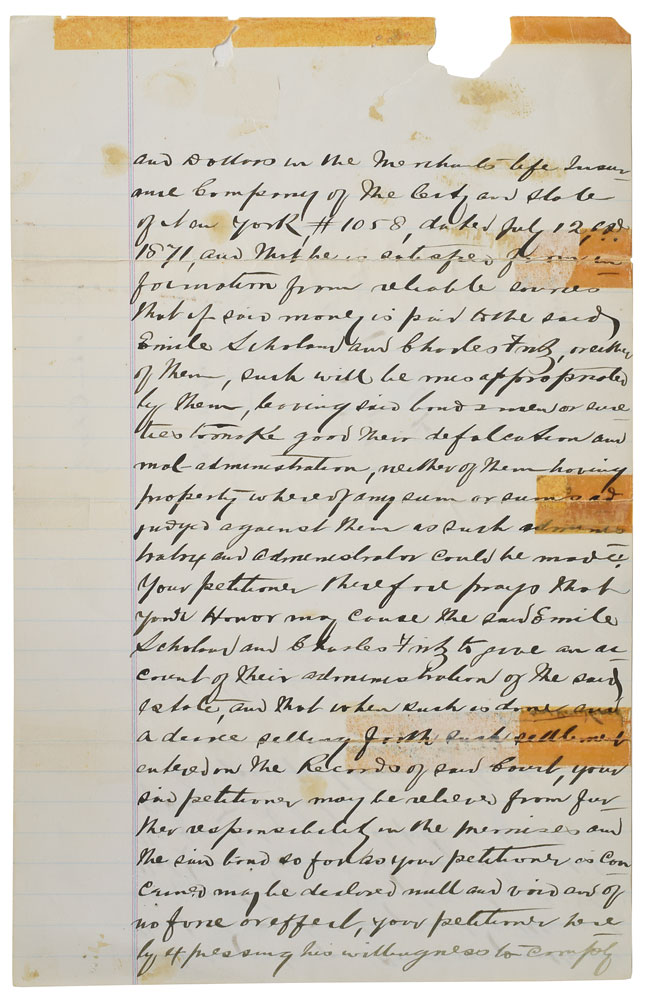 and Dollars in the Merchants life Insur-
ance Company of The City and State
of New York, #1058, dated July 12,
1871, and that he is satisfied from in
formation from reliable sources
that if said money is paid to the said
Emile Scholand and Charles Fritz, or either
of them, such will be misappropriated
by them, leaving said bondsmen or sure
ties to make good their defalcation and
mal-administration, neither of them having
property where of any sum or sums ad
judged against them as such adminis
tratrix and administrator could be made.
Your petitioner therefore prays that
your Honor may cause the said Emile
Scholand and Charles Fritz to give an ac-
count of their administration of the said
Estate, and that when such is done and
a decree setting forth such settlement
entered on the Records of said Court, your
said petitioner may be relieved from fur
ther responsibility in the premises and
the said bond so far as your petitioner is con
cerned may be declared null and void and of
no force or effect, your petitioner here
by expressing his willingness to comply